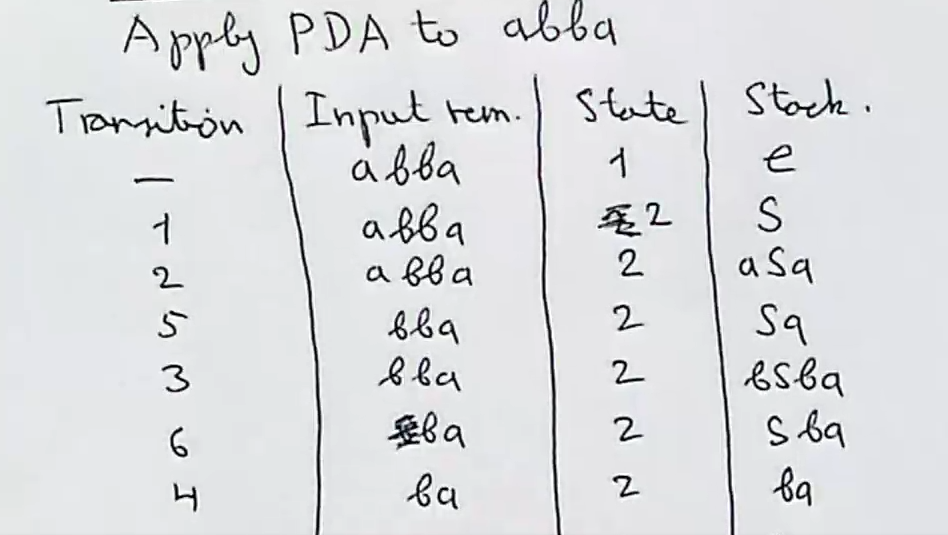 Apply PDA to abba
Transition | Input rem. | State | Stack.
— | abba | 1 | e
1 | abba | 2 | S
2 | abba | 2 | aSa
5 | bba | 2 | Sa
3 | bba | 2 | bSba
6 | ba | 2 | Sba
4 | ba | 2 | ba